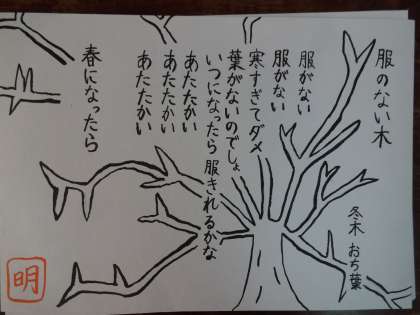 服のない木
冬木 おち葉
服がない
服がない
寒すぎてダメ
葉がないのでしょ
いつになったら服きれるかな
あたたかい
あたたかい
あたたかい
春になったら
明